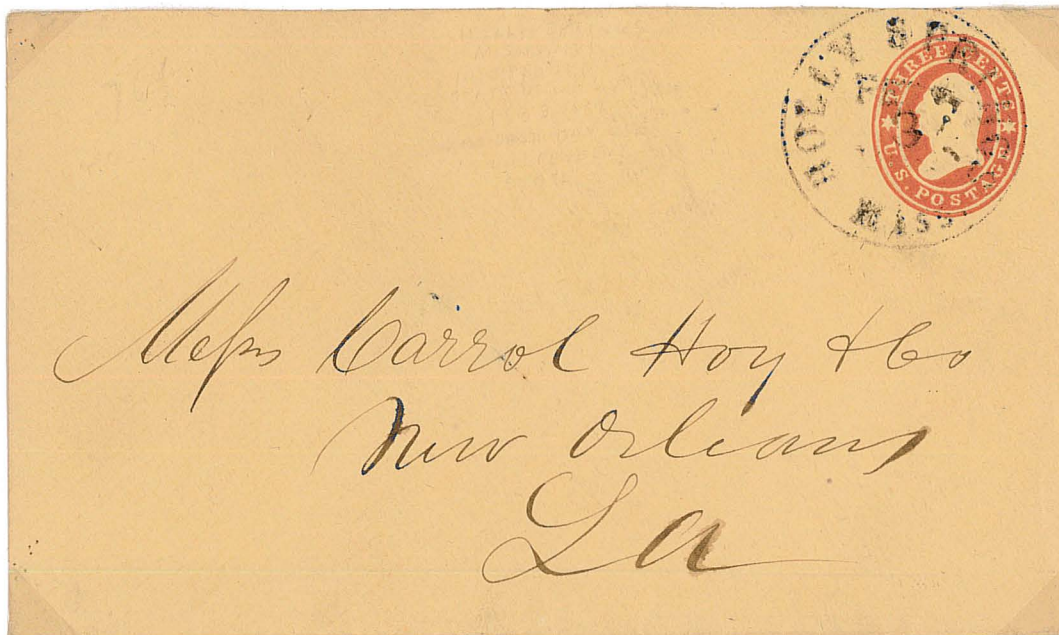 HOLLY SPRINGS
MISS.
THREE CENTS
U.S. POSTAGE
Messrs Carrol Hoy & Co
New Orleans
La